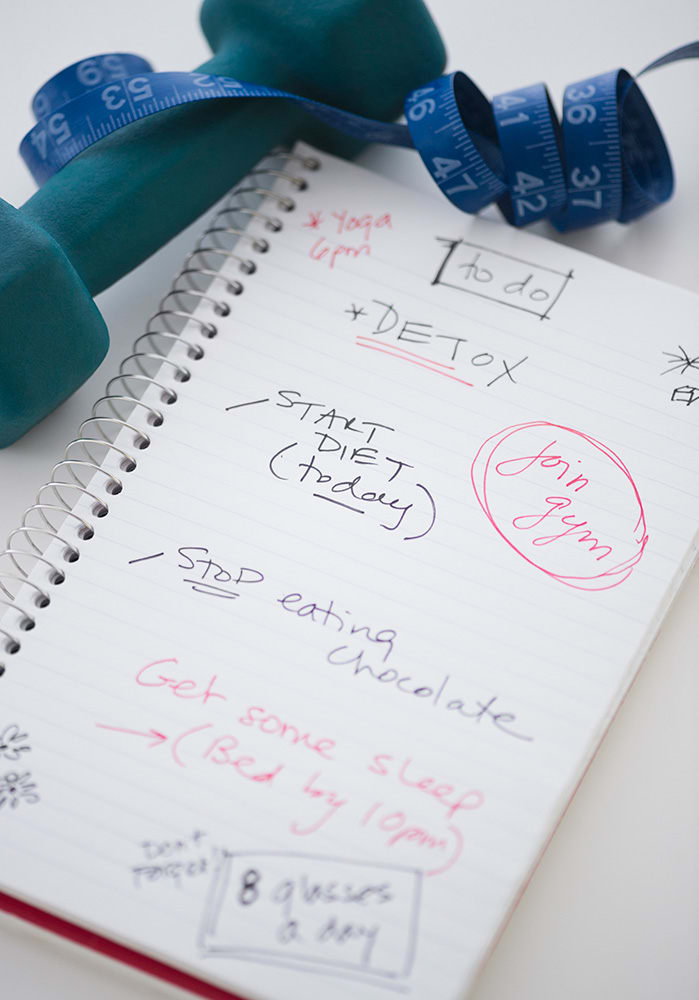 * Yoga
6pm
to do
*DETOX
START
DIET
(today)
Join
gym
STOP eating
chocolate
Get some sleep
→ (Bed by 10pm)
Don't
Forget!
8 glasses
a day
59
53
54
46
47
41
42
36
37